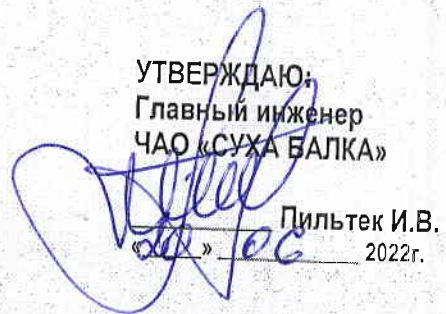 УТВЕРЖДАЮ:
Главный инженер
ЧАО «СУХА БАЛКА»
Пильтек И.В.
«20» 06 2022г.